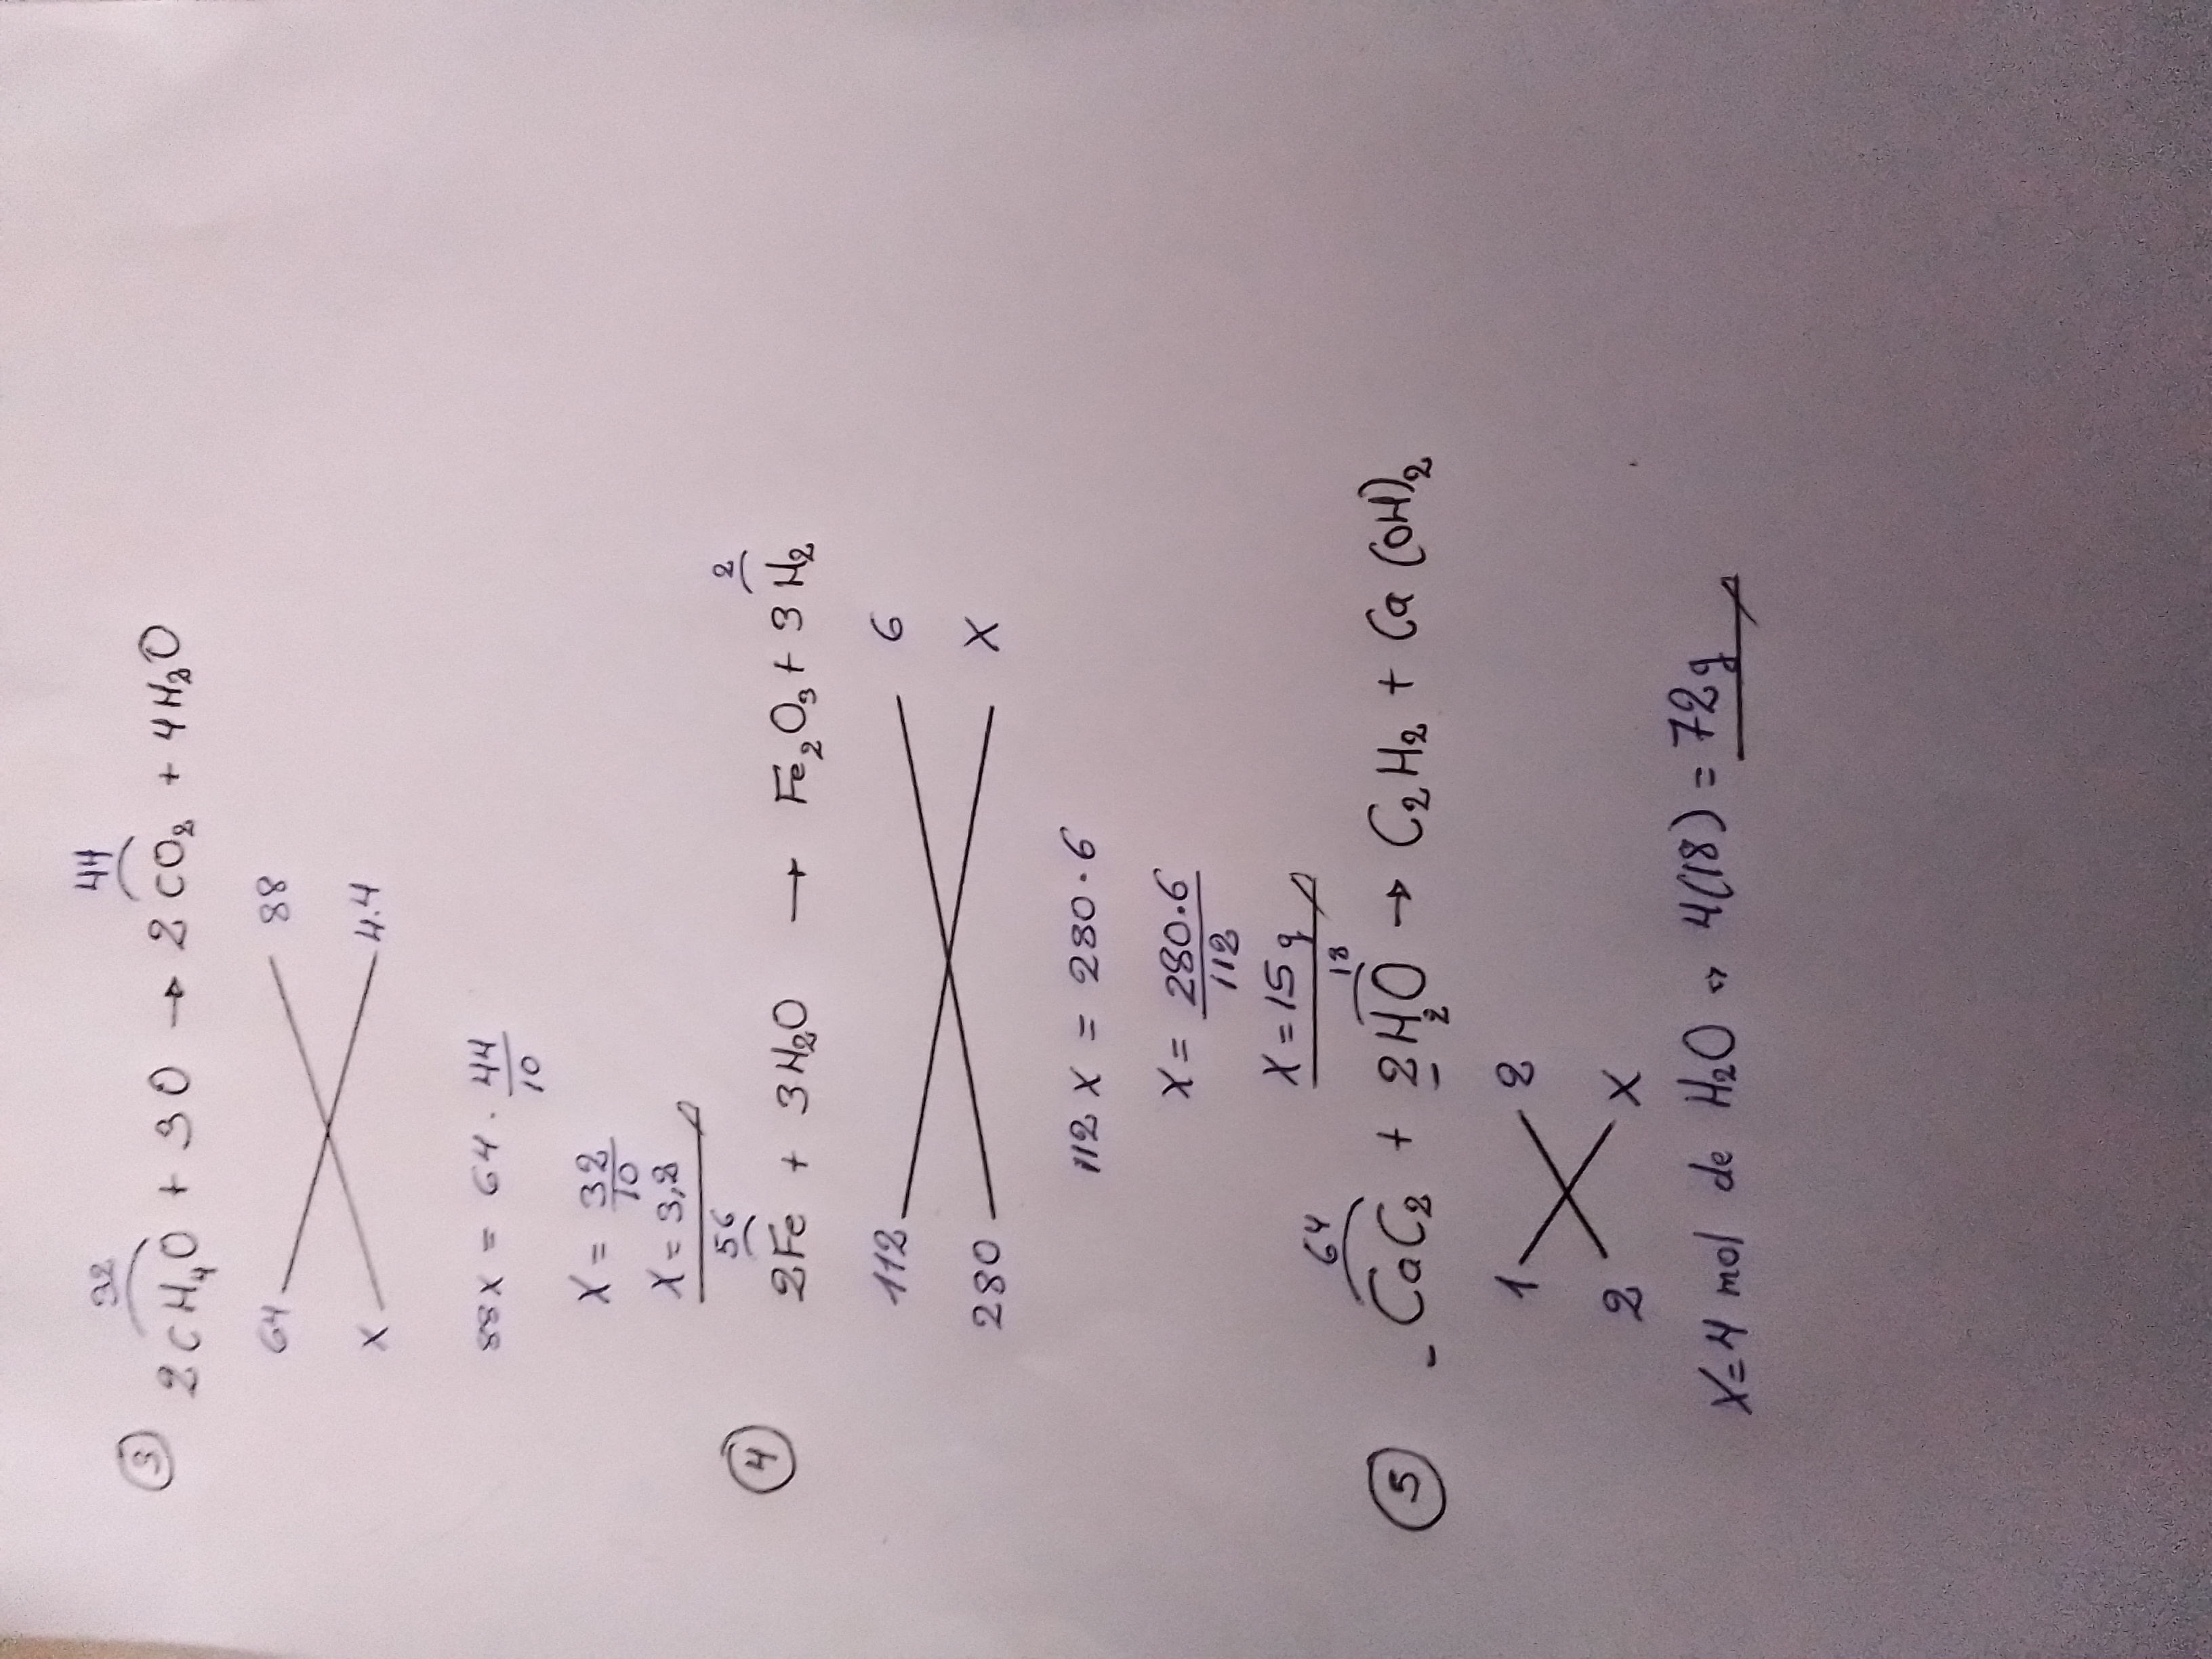 ③ 2CH₄O + 3O → 2CO₂ + 4H₂O
32 44
64 88
X 4.4
88X = 64 · 44/10
X = 32/10
X = 3,2
④ 2Fe + 3H₂O → Fe₂O₃ + 3H₂
56 2
112 6
280 X
112 X = 280 · 6
X = 280·6/112
X = 15 g
⑤ - CaC₂ + 2H₂O → C₂H₂ + Ca(OH)₂
64 18
1 2
2 X
X = 4 mol de H₂O ⇔ 4(18) = 72g